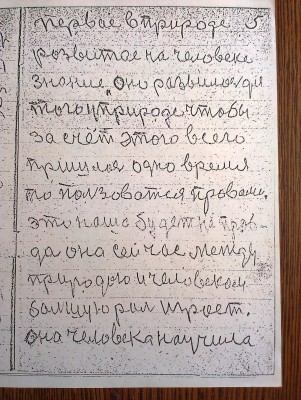 первое в природе 5
розвитое на человеке
знание, оно развилось для
того у природе чтобы
за счёт этого всего
пришлося одно время
то ползоватся правами.
это наше будет не прав-
да она сейчас между
природою и человеком
болшую рол играет.
она человека научила